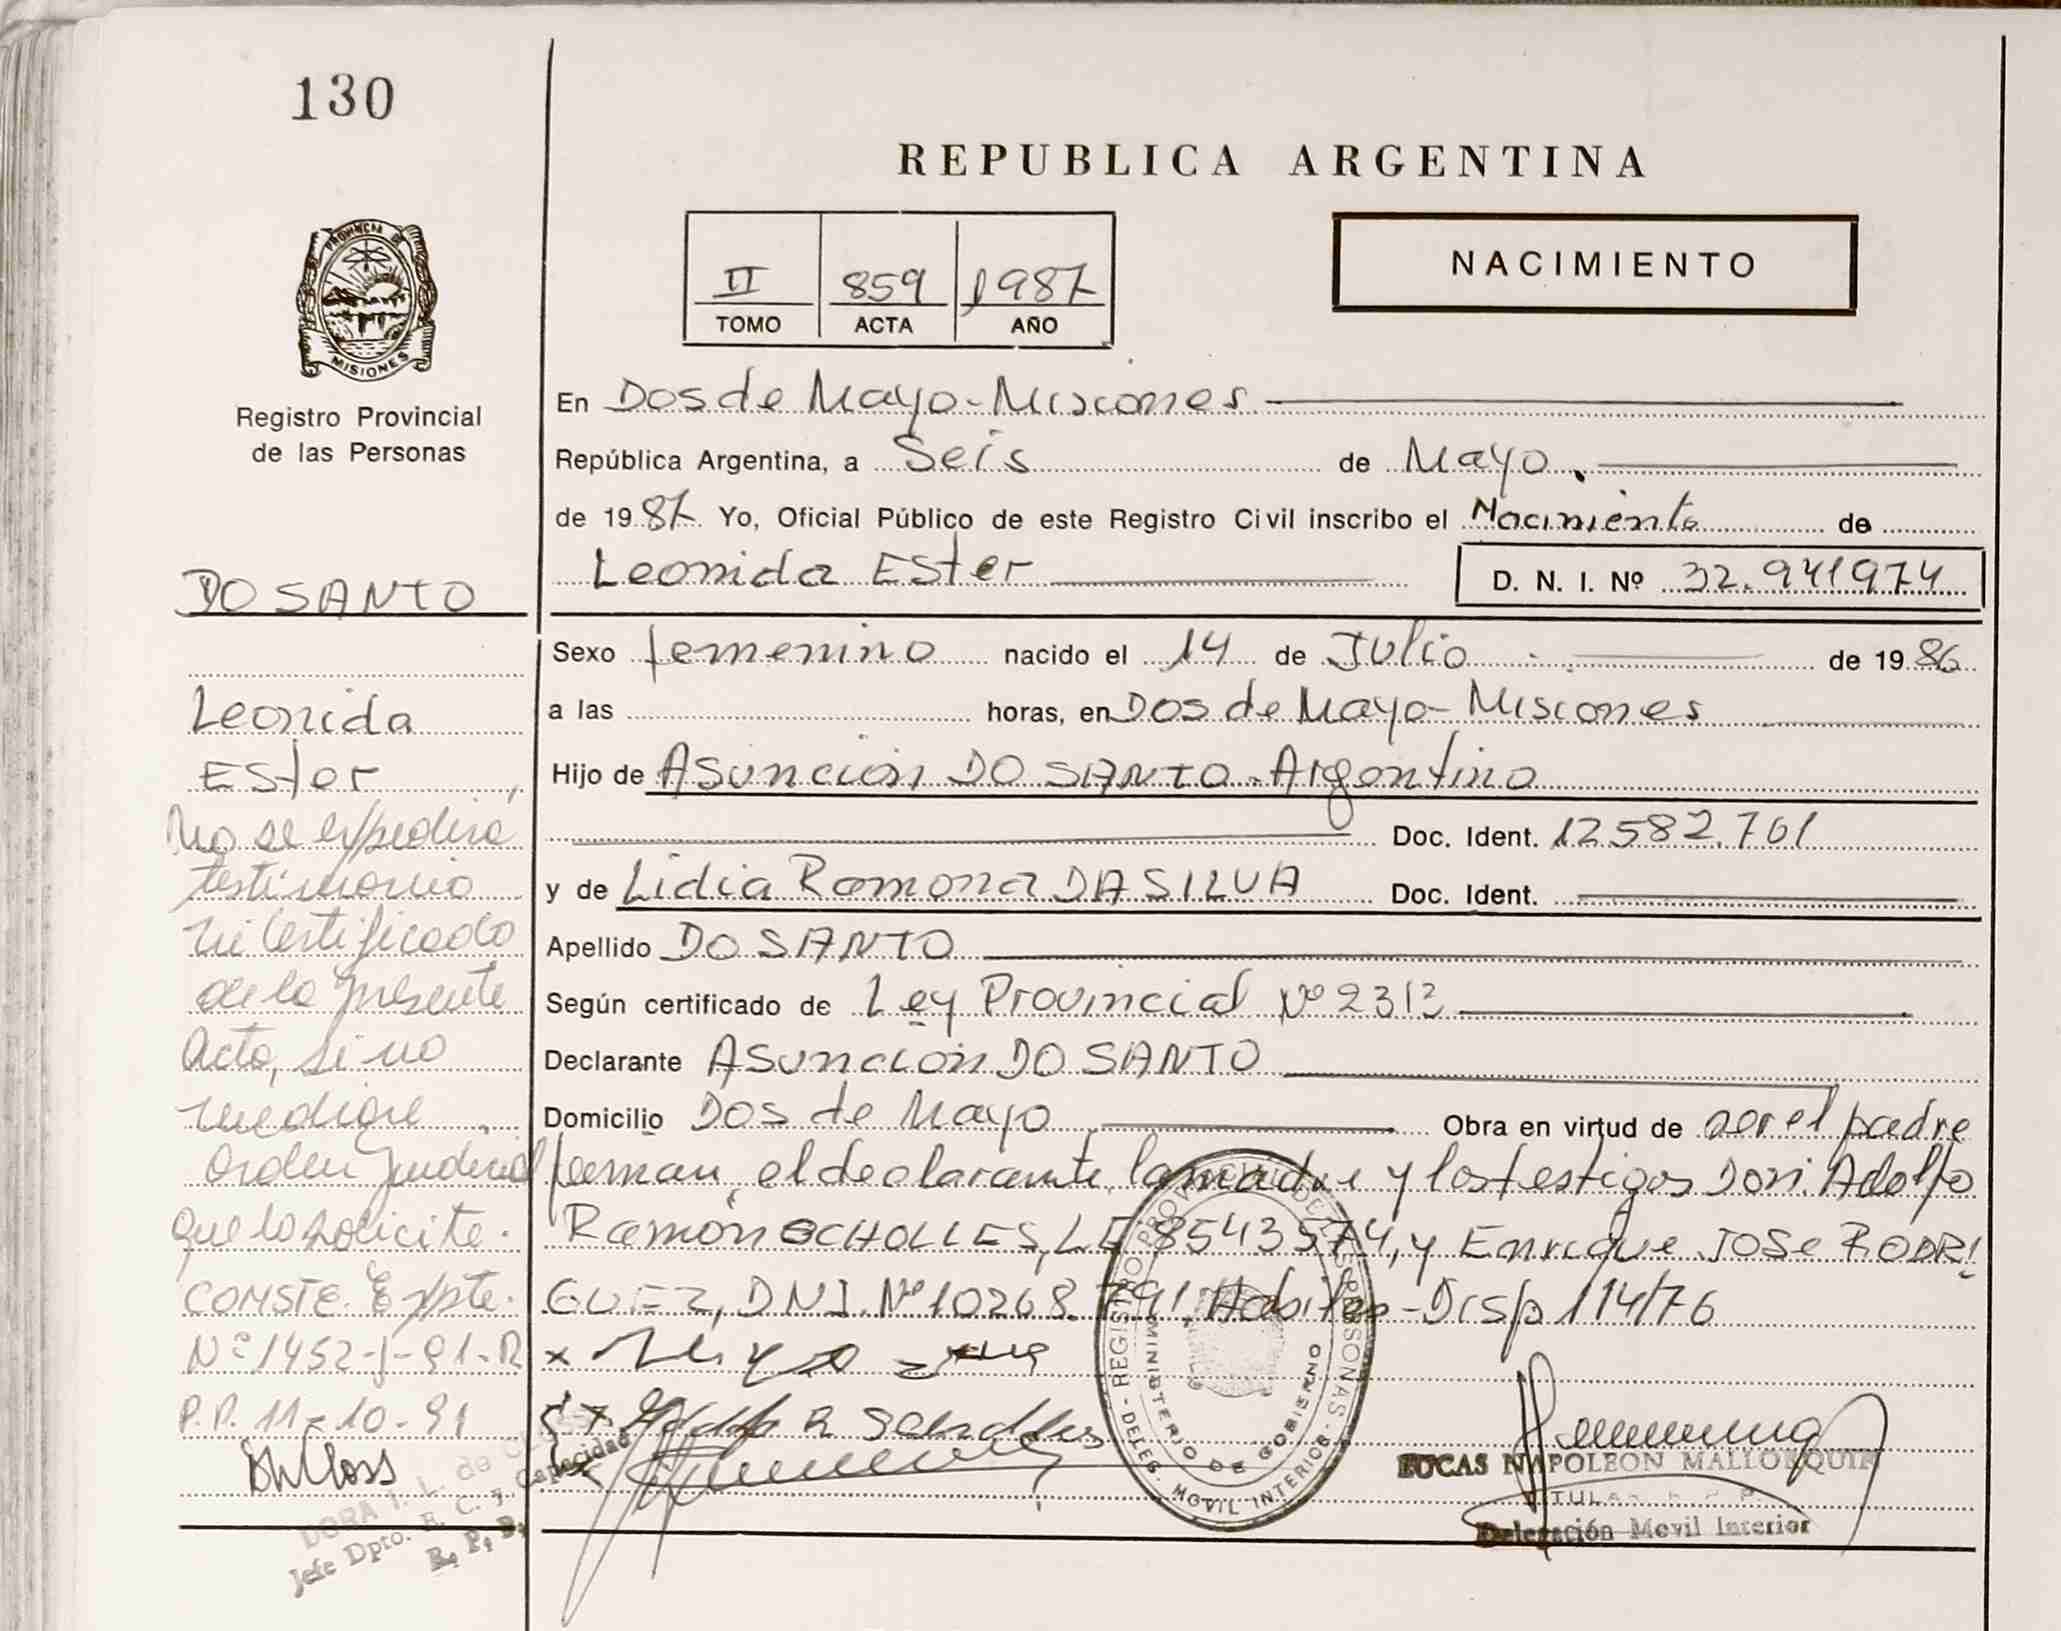 130
REPUBLICA ARGENTINA
PROVINCIA DE
MISIONES
Registro Provincial
de las Personas
II 859 1987
TOMO ACTA AÑO
NACIMIENTO
En Dos de Mayo-Misiones
República Argentina, a Seis de Mayo
de 1987 Yo, Oficial Público de este Registro Civil inscribo el Nacimiento de
Leonida Ester D. N. I. Nº 32.941974
DO SANTO
Leonida
Ester
No se expedirá
testimonio
ni certificado
de la presente
Acta, si no
mediare
orden Judicial
que lo solicite.
CONSTE. Expte.
Nº 1452-J-91-R
P.P. 11-10-91
Jefe Dpto. E. C. y Capacidad
R. P. P.
Sexo femenino nacido el 14 de Julio de 1986
a las horas, en Dos de Mayo-Misiones
Hijo de Asunción DO SANTO-Argentino
Doc. Ident. 12582.761
y de Lidia Ramona DA SILVA Doc. Ident.
Apellido DO SANTO
Según certificado de Ley Provincial Nº 2313
Declarante Asunción DO SANTO
Domicilio Dos de Mayo Obra en virtud de ser el padre
firman, el declarante, la madre y los testigos Don. Adolfo
Ramón SCHOLLES, LE 8543574, y Enrique JOSE RODRI
GUEZ, DNI. Nº 10268.791, Habiles-Disp 114/76
REGISTRO PROVINCIAL DE LAS PERSONAS
MINISTERIO DE GOBIERNO
DELEG. MOVIL INTERIOR
LUCAS NAPOLEON MALLORQUIN
TITULAR R. P. P.
Delegación Movil Interior